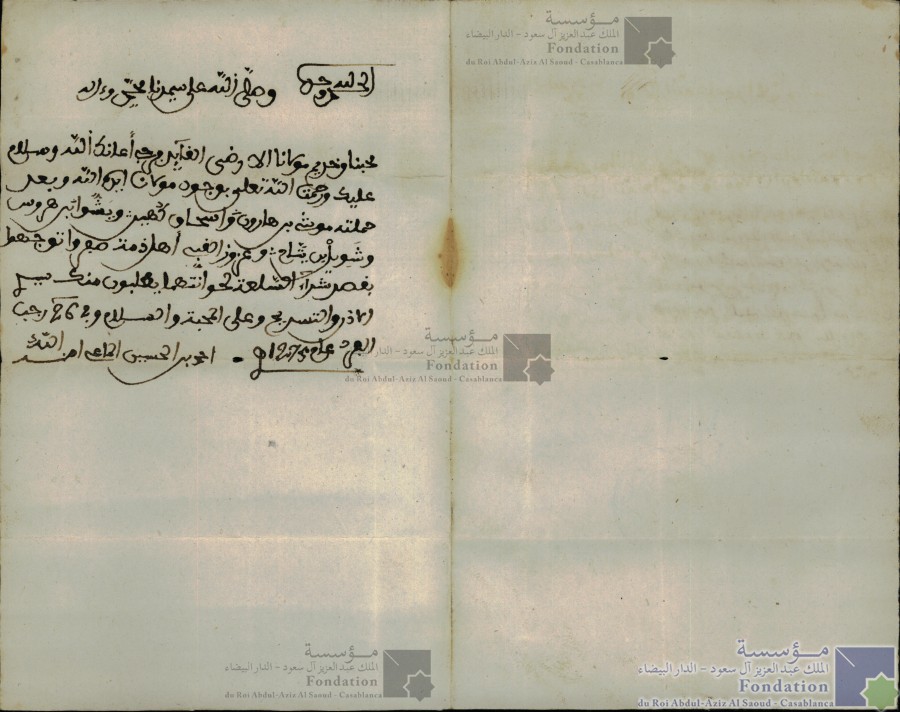 الحمد لله وحده
وصلى الله على سيدنا محمد وءاله
محبنا وخديم مولانا الارضى القايد أعانك الله وسلام
عليك ورحمت الله تعلى بوجود مولانا ايده الله وبعد
حملته موشى بن هارون واسحاق كهين ويشوا بن هروس
وشويل بن وعزوز اهل ذمة توجهوا
بقصد شراء السلعة لحوانتهما يطلبون منك
والتسريح وعلى المحبة والسلام وفي 26 رجب
الفرد عام 1275
بن الحسين امنه الله
مؤسسة
الملك عبد العزيز آل سعود - الدار البيضاء
Fondation
du Roi Abdul-Aziz Al Saoud - Casablanca
مؤسسة
الملك عبد العزيز آل سعود - الدار البيضاء
Fondation
du Roi Abdul-Aziz Al Saoud - Casablanca
مؤسسة
الملك عبد العزيز آل سعود - الدار البيضاء
Fondation
du Roi Abdul-Aziz Al Saoud - Casablanca
مؤسسة
الملك عبد العزيز آل سعود - الدار البيضاء
Fondation
du Roi Abdul-Aziz Al Saoud - Casablanca